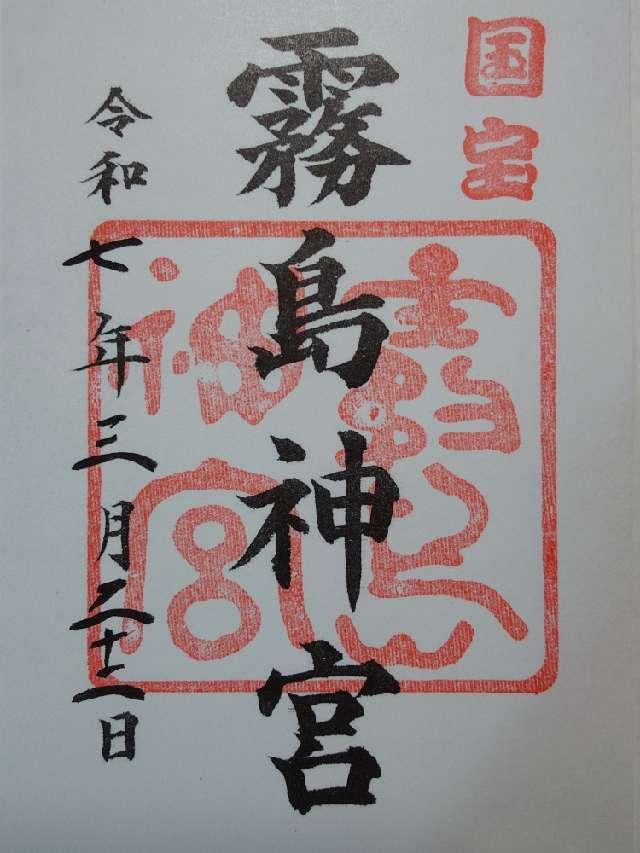 国宝
霧島神宮
霧島神宮
令和七年三月二十二日